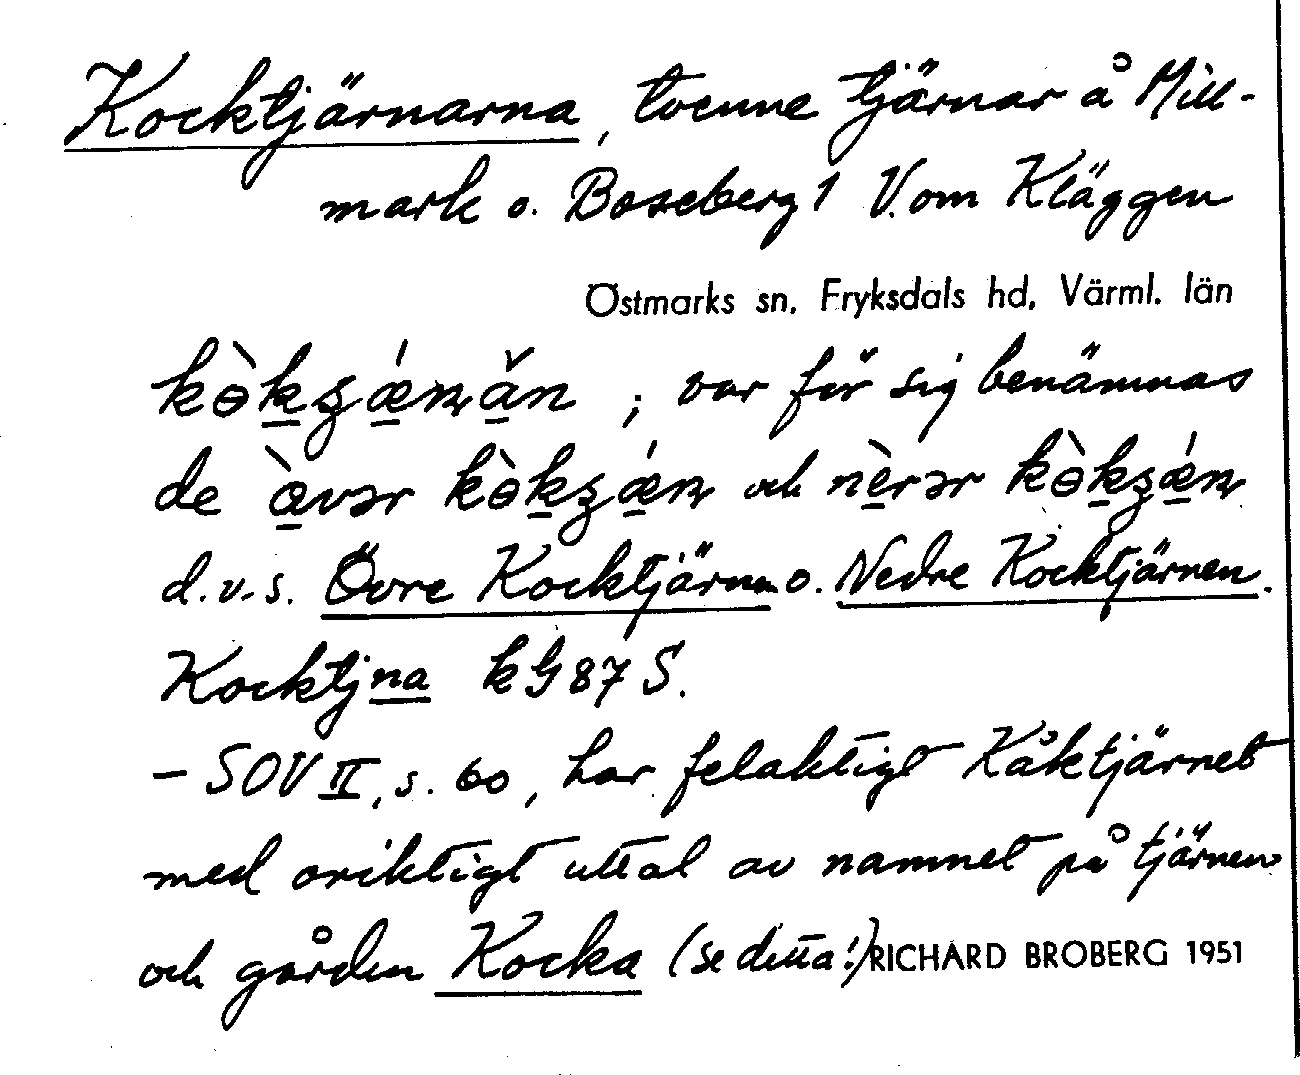 Kocktjärnarna, tvenne tjärnar å Mill-
mark o. Boseberg 1 V. om Kläggen
Östmarks sn, Fryksdals hd, Värml. län
kò̱kʒǽṇa̱n ; var för sig benämnas
de œ̀vər kɵ̀kʒǽṇ och nèrər kɵ̀kʒǽṇ
d.v.s. Övre Kocktjärnen o. Nedre Kocktjärnen.
Kocktjna kG 87 S.
– SOV II, s. 60, har felaktigt Kåktjärnet
med oriktigt uttal av namnet på tjärnen
och gården Kocka (se detta!) RICHARD BROBERG 1951